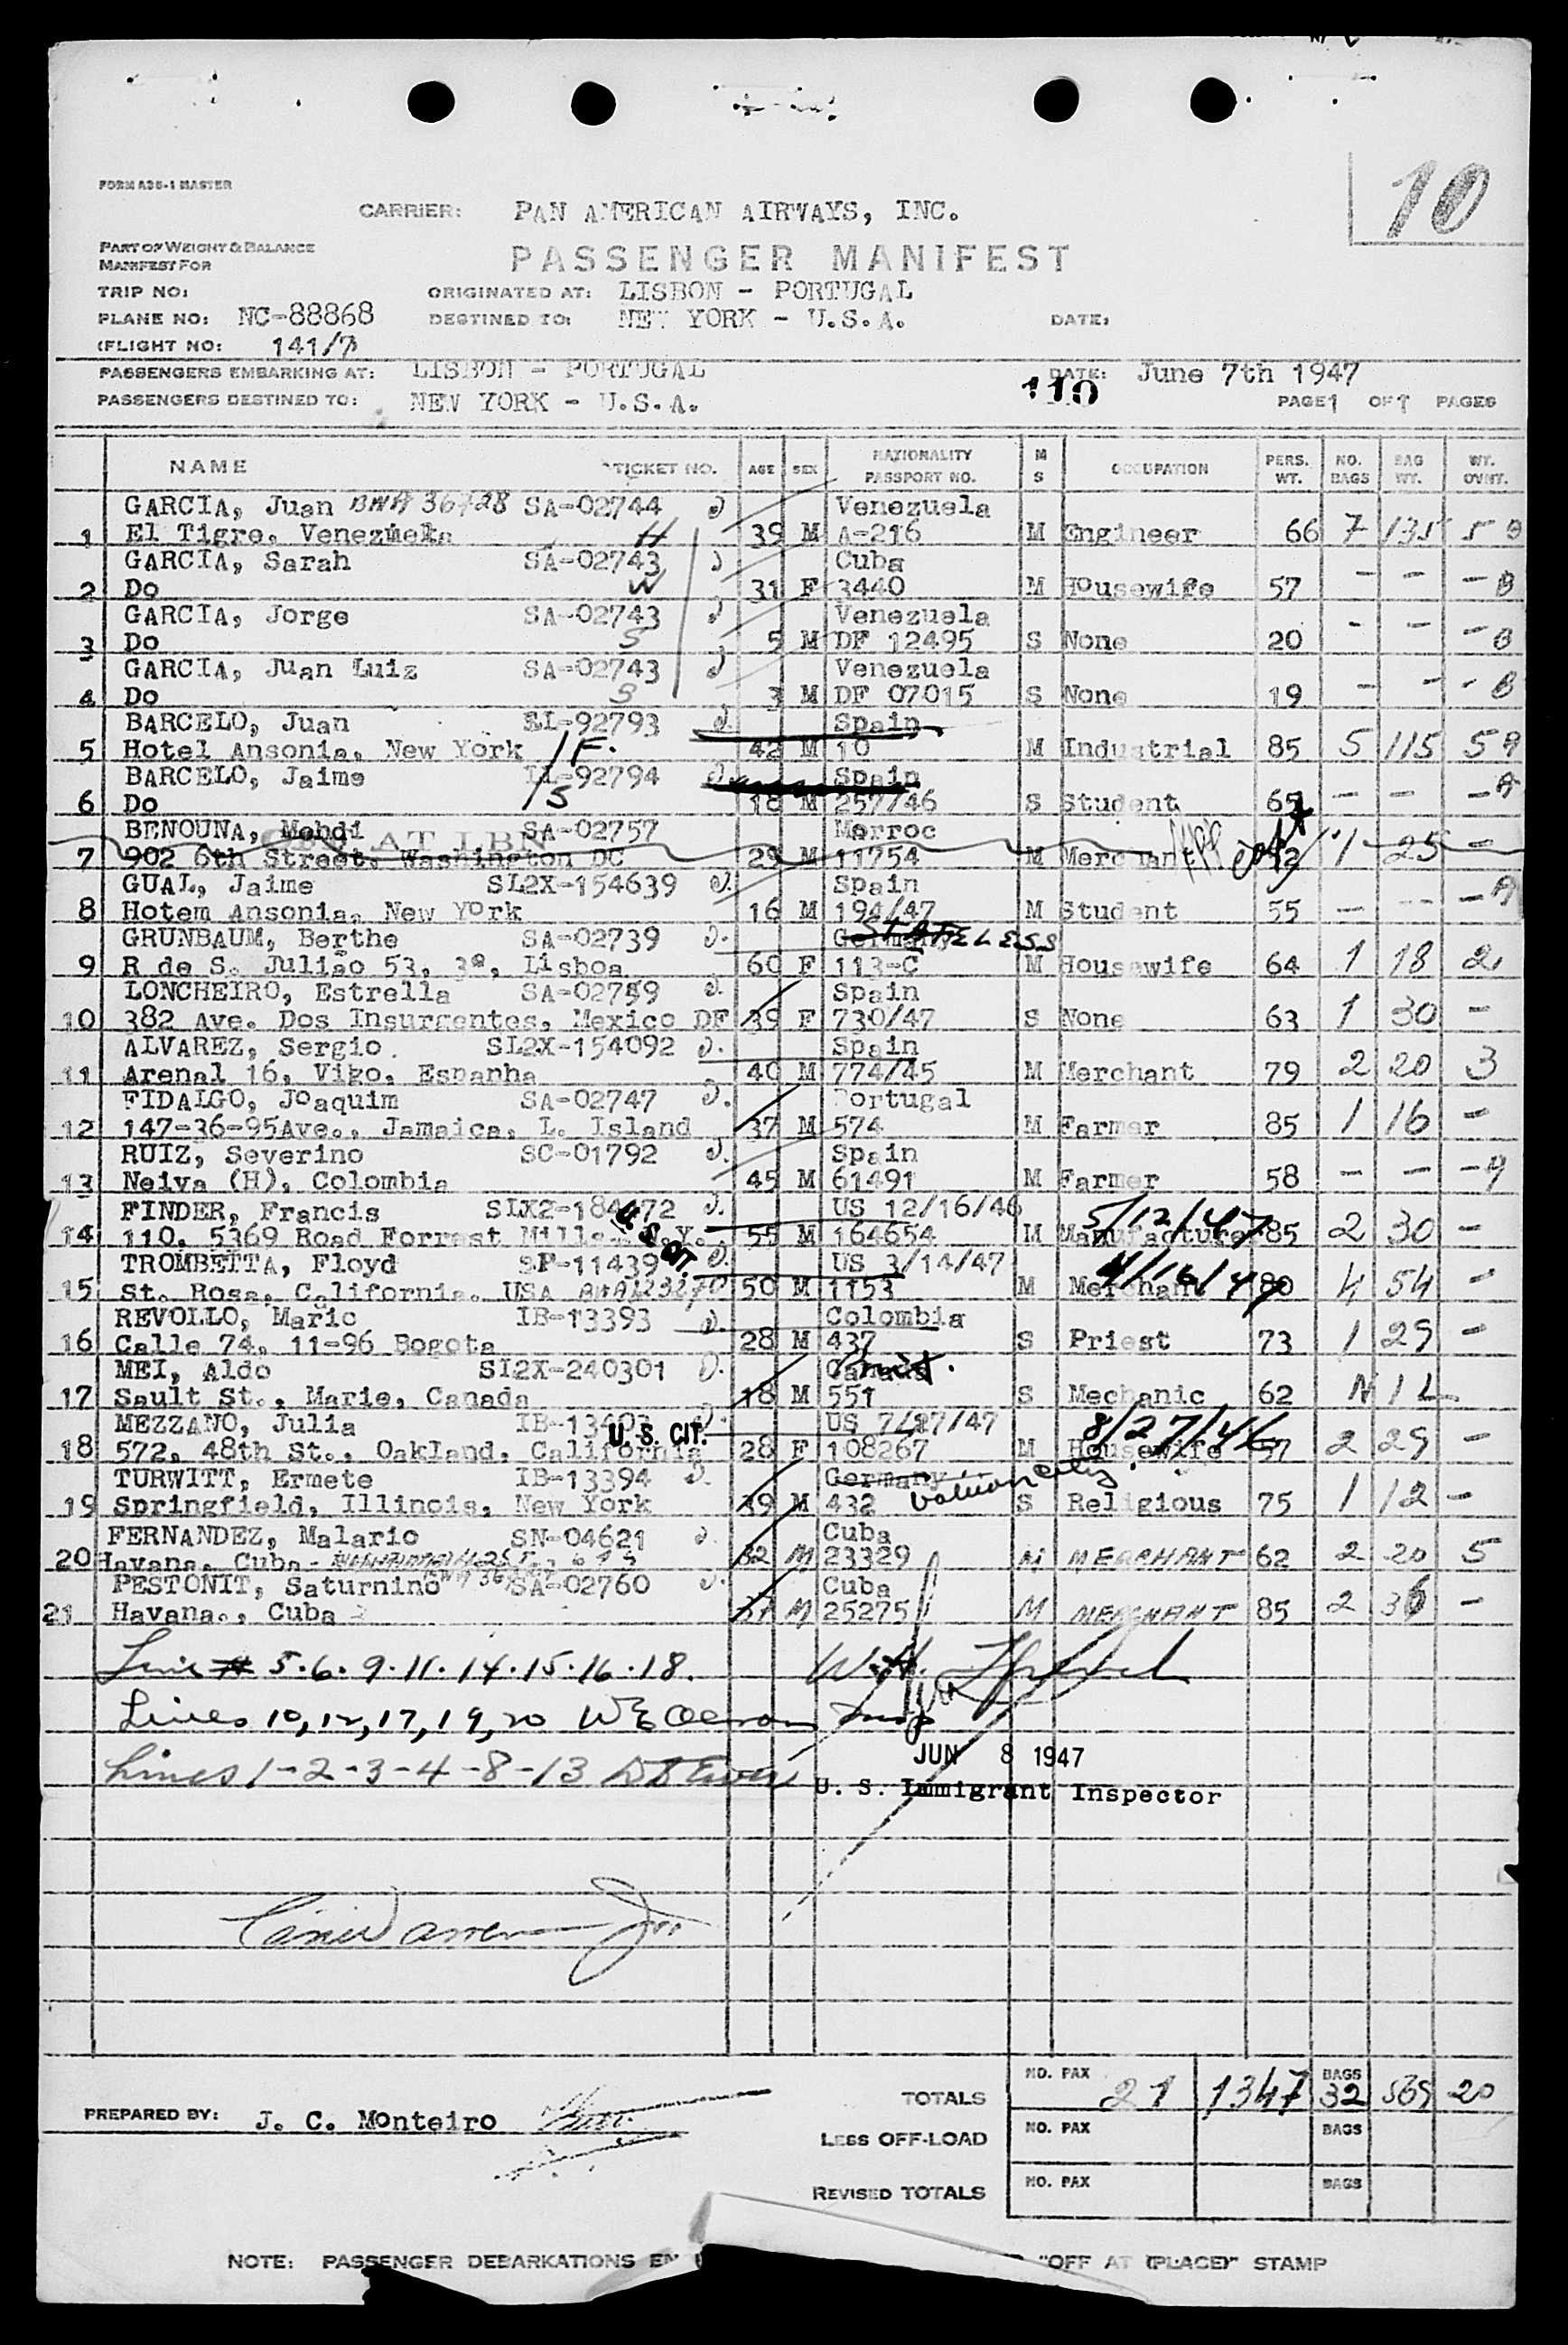 10
FORM A36-1 MASTER
CARRIER: PAN AMERICAN AIRWAYS, INC.
PART OF WEIGHT & BALANCE
MANIFEST FOR
PASSENGER MANIFEST
TRIP NO: ORIGINATED AT: LISBON - PORTUGAL
PLANE NO: NC-88868 DESTINED TO: NEW YORK - U.S.A. DATE:
FLIGHT NO: 141/7
PASSENGERS EMBARKING AT: LISBON - PORTUGAL DATE: June 7th 1947
PASSENGERS DESTINED TO: NEW YORK - U.S.A. 110 PAGE 1 OF 1 PAGES
NAME TICKET NO. AGE SEX NATIONALITY PASSPORT NO. M S OCCUPATION PERS. WT. NO. BAGS BAG WT. WT. OVNT.
GARCIA, Juan BHA 36728 SA-02744 Venezuela
1 El Tigre, Venezuela H 39 M A-216 M Engineer 66 7 135 5 B
GARCIA, Sarah SA-02743 Cuba
2 Do W 31 F 3440 M Housewife 57 - - - B
GARCIA, Jorge SA-02743 Venezuela
3 Do S 5 M DF 12495 S None 20 - - - B
GARCIA, Juan Luiz SA-02743 Venezuela
4 Do S 3 M DF 07015 S None 19 - - - B
BARCELO, Juan 92793 Spain
5 Hotel Ansonia, New York /F. 42 M 10 M Industrial 85 5 115 59
BARCELO, Jaime 92794 Spain
6 Do /S 18 M 257/46 S Student 65 - - -
BENOUNA, Mehdi SA-02757 Marroc
OFF AT LBN
7 902 6th Street, Washington DC 29 M 11754 M Merchant 1 25 -
GUAL, Jaime SL2X-154639 Spain
8 Hotem Ansonia, New York 16 M 194/47 M Student 55 - - -
GRUNBAUM, Berthe SA-02739 Germany STATELESS
9 R de S. Julião 53, 3º, Lisboa 60 F 113-C M Housewife 64 1 18 2
LONCHEIRO, Estrella SA-02759 Spain
10 382 Ave. Dos Insurgentes, Mexico DF 39 F 730/47 S None 63 1 30 -
ALVAREZ, Sergio SL2X-154092 Spain
11 Arenal 16, Vigo, Espanha 40 M 774/45 M Merchant 79 2 20 3
FIDALGO, Joaquim SA-02747 Portugal
12 147-36-95Ave., Jamaica, L. Island 37 M 574 M Farmer 85 1 16 -
RUIZ, Severino SC-01792 Spain
13 Neiva (H), Colombia 45 M 61491 M Farmer 58 - - -9
FINDER, Francis SLX2-184472 US 12/16/46 5/12/47
14 110, 5369 Road Forrest Mills N.Y. U.S. CIT. 55 M 164654 M Manufacturer 85 2 30 -
TROMBETTA, Floyd SP-11439 US 3/14/47 4/16/47
15 St. Rosa, California, USA 50 M 1153 M Merchant 80 4 54 -
REVOLLO, Mario IB-13393 Colombia
16 Calle 74, 11-96 Bogota 28 M 437 S Priest 73 1 29 -
MEI, Aldo SL2X-240301 Canada
17 Sault St., Marie, Canada 18 M 551 S Mechanic 62 NIL
MEZZANO, Julia IB-13403 US 7/27/47 8/27/46
18 572, 48th St., Oakland, California U. S. CIT. 28 F 108267 M Housewife 57 2 29 -
TURWITT, Ermete IB-13394 Germany Vatican City.
19 Springfield, Illinois, New York 39 M 432 S Religious 75 1 12 -
FERNANDEZ, Malario SN-04621 Cuba
20 Havana, Cuba 32 M 23329 M MERCHANT 62 2 20 5
PESTONIT, Saturnino SA-02760 Cuba
21 Havana., Cuba 37 M 25275 M MERCHANT 85 2 36 -
Line # 5.6.9.11.14.15.16.18.
Lines 10, 12, 17, 19, 20 Insp
JUN 8 1947
Lines 1-2-3-4-8-13
U. S. Immigrant Inspector
TOTALS NO. PAX 21 1347 BAGS 32 569 20
PREPARED BY: J. C. Monteiro
LESS OFF-LOAD NO. PAX BAGS
REVISED TOTALS NO. PAX BAGS
NOTE: PASSENGER DEBARKATIONS EN "OFF AT (PLACE)" STAMP